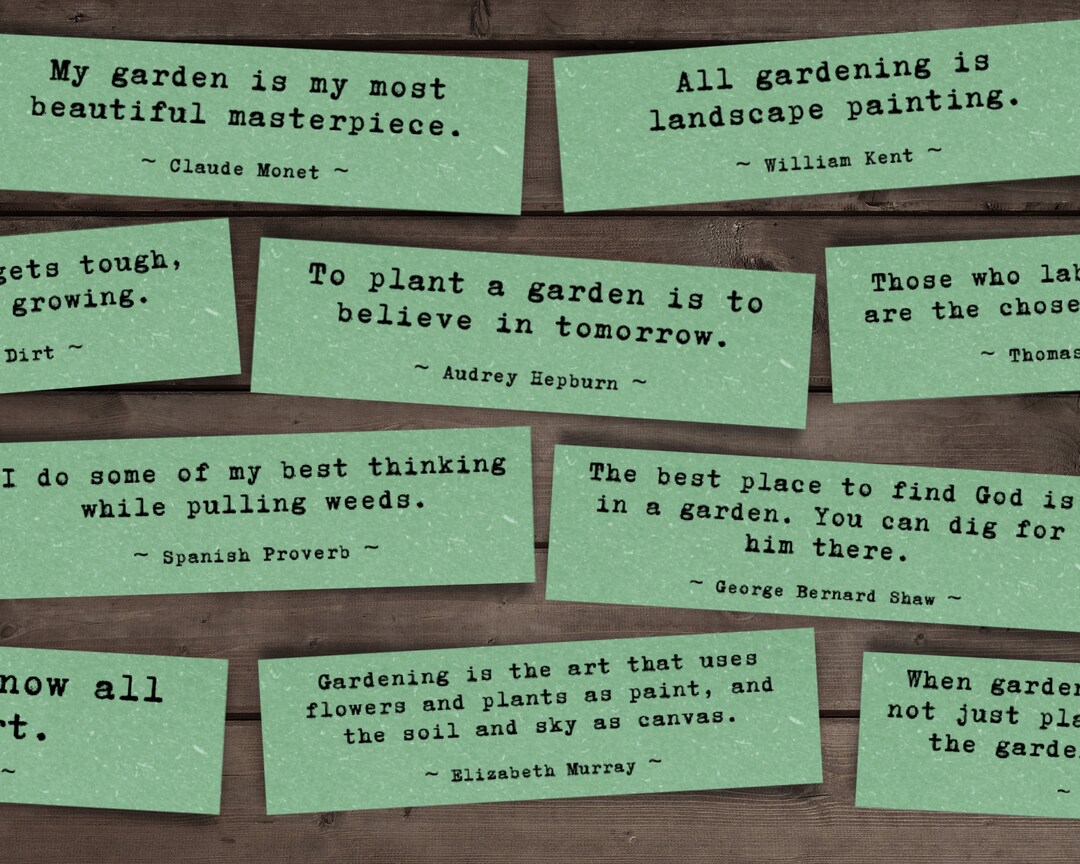 My garden is my most
beautiful masterpiece.
~ Claude Monet ~
All gardening is
landscape painting.
~ William Kent ~
gets tough,
growing.
Dirt ~
To plant a garden is to
believe in tomorrow.
~ Audrey Hepburn ~
Those who lab
are the chose
~ Thomas
I do some of my best thinking
while pulling weeds.
~ Spanish Proverb ~
The best place to find God is
in a garden. You can dig for
him there.
~ George Bernard Shaw ~
now all
rt.
~
Gardening is the art that uses
flowers and plants as paint, and
the soil and sky as canvas.
~ Elizabeth Murray ~
When garden
not just pla
the garde
~